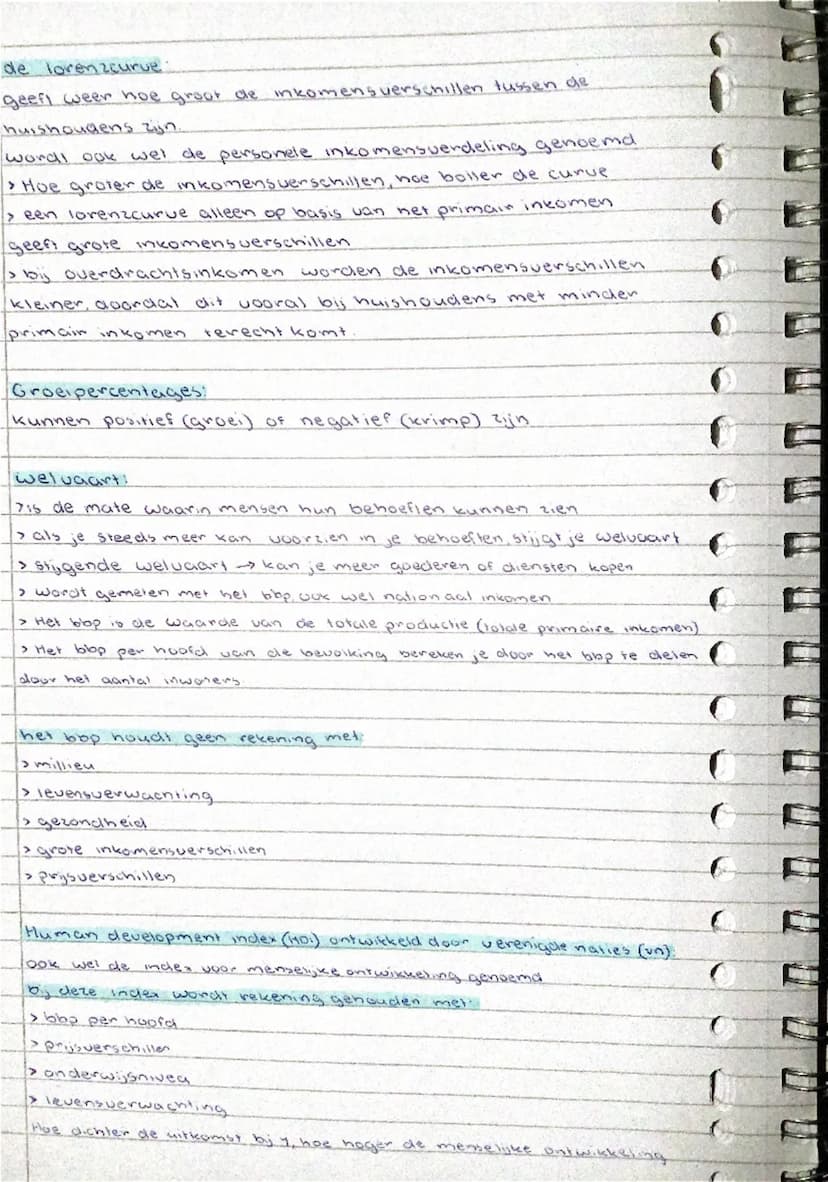 de lorenzcurve:
geeft weer hoe groot de inkomensverschillen tussen de
huishoudens zijn.
wordt ook wel de personele inkomensverdeling genoemd
> Hoe groter de inkomensverschillen, hoe boller de curve
> een lorenzcurve alleen op basis van het primair inkomen
geeft grote inkomensverschillen
> bij overdrachtsinkomen worden de inkomensverschillen
kleiner, doordat dit vooral bij huishoudens met minder
primair inkomen terecht komt.
Groeipercentages:
kunnen positief (groei) of negatief (krimp) zijn
welvaart:
> is de mate waarin mensen hun behoeften kunnen zien
> als je steeds meer kan voorzien in je behoeften, stijgt je welvaart
> stijgende welvaart → kan je meer goederen of diensten kopen
> wordt gemeten met het bbp, ook wel nationaal inkomen
> Het bbp is de waarde van de totale productie (totale primaire inkomen)
> Het bbp per hoofd van de bevolking bereken je door het bbp te delen
door het aantal inwoners.
het bbp houdt geen rekening met:
> millieu
> levensverwachting
> gezondheid
> grote inkomensverschillen
> prijsverschillen
Human development index (HDi) ontwikkeld door verenigde naties (vn):
ook wel de index voor menselijke ontwikkeling genoemd
bij deze index wordt rekening gehouden met:
> bbp per hoofd
> prijsverschillen
> onderwijsnivea
> levensverwachting
Hoe dichter de uitkomst bij 1, hoe hoger de menselijke ontwikkeling